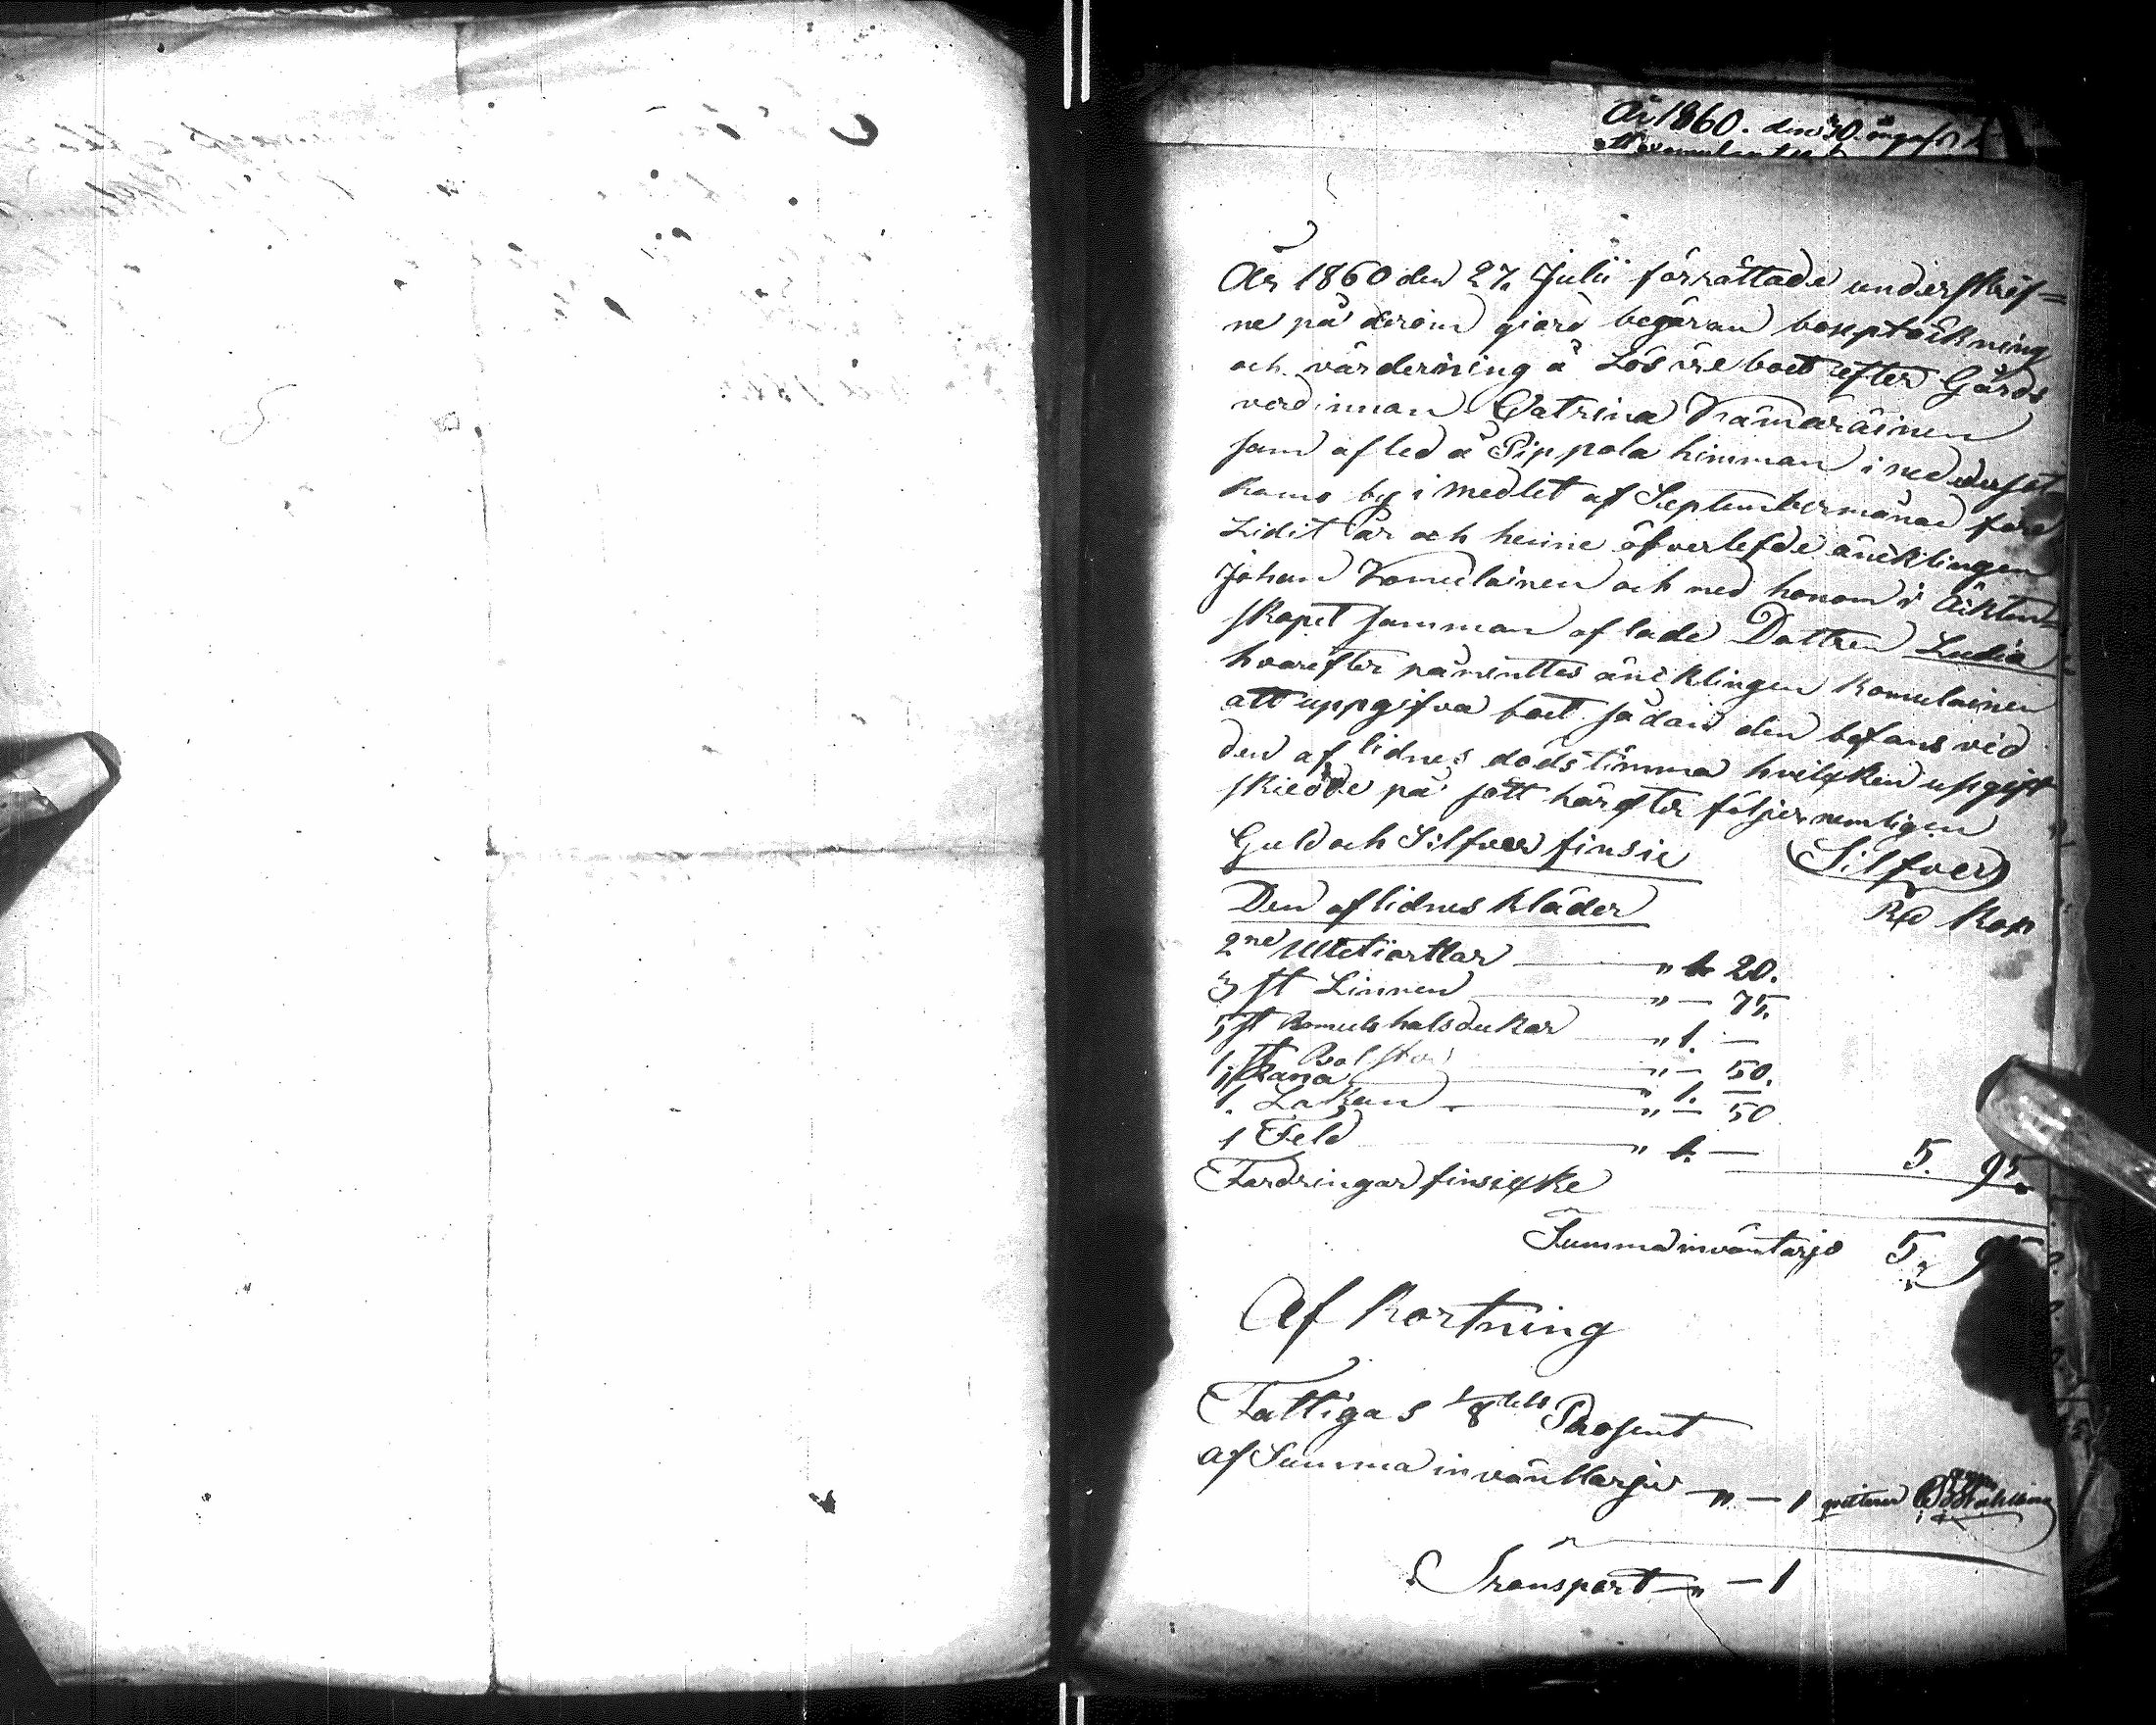 År 1860. den 30. august
År 1860 den 27. Julii förrättade underskrif=
ne på derom giord begäran boupteckning
och värdering å Lösöre boet efter Gårds
verdinnan Catrina Kämäräinen
som afled å Pippola himman i nedder
by i medlet af Septembermånad före
Lidit år och henne öfverlefde äncklingen
Johan Komulainen och med honom i äckten=
skapet samman aflade Dottren Ludia
hvarefter påmintes äncklingen Komulainen
att uppgifva boet sådan den befans vid
den aflidnes dödstimma hvilcken upgift
skiedde på sätt härefter följer nemligen
Guld och Silfver finsie Silfver
Den aflidnes kläder Ra Kop
2ne Ulletiortlar " 1. 20.
3 st Linnen " — 75.
5 st Bomuls halsdukar " 1. —
1 st Bolster " — 50.
1 st Rana " 1. —
1. Lakan " — 50
1 Feld " 1. — 5. 95.
Fordringar finsicke
Summa inväntarjo 5. 95
Af kortning
Fattigas 1/8 dels Prosent
af Summa inväntarjer — " — 1 qvitteras
Transport — " — 1